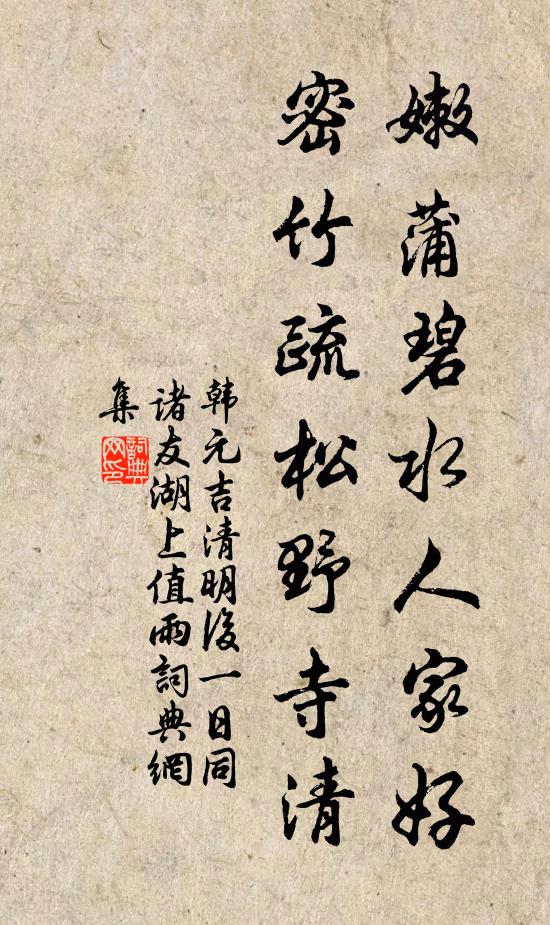 嫩蒲碧水人家好
密竹疏松野寺清
韩元吉清明後一日同
诸友湖上值雨詞典網
集
詞典
网印